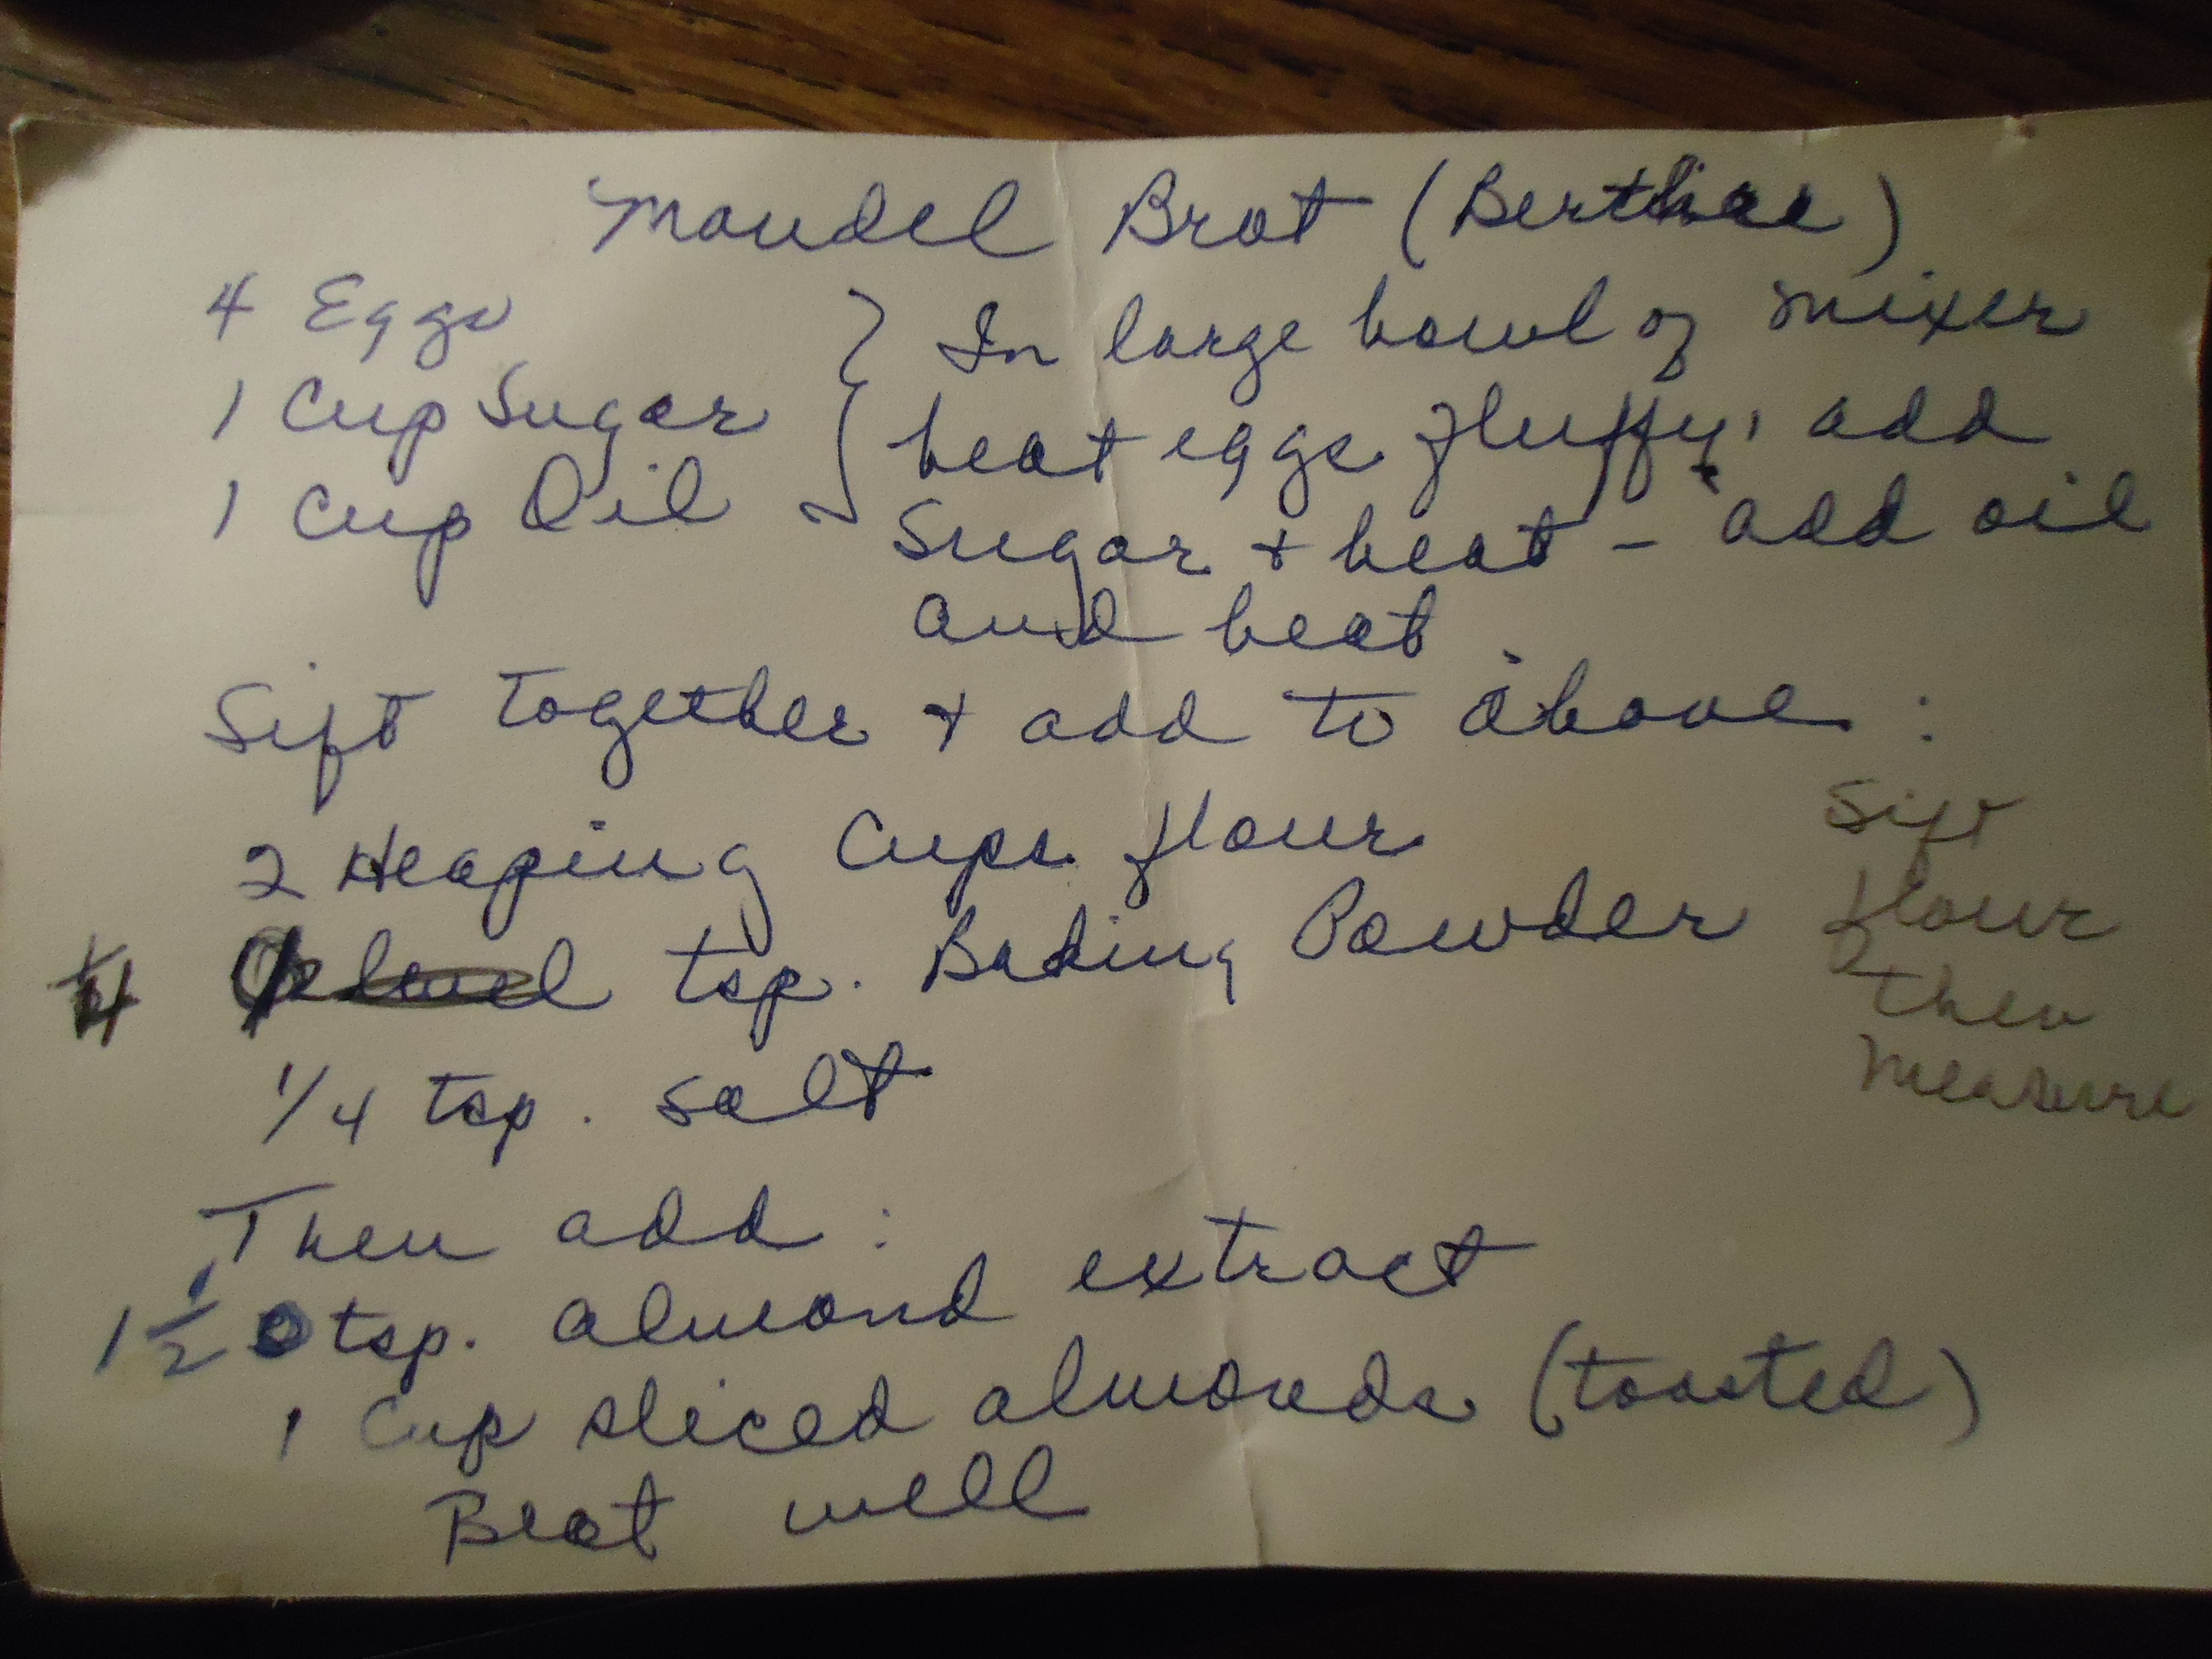 Mandel Brot (
4 Eggs
1 Cup Sugar
1 Cup Oil
In large bowl of mixer
beat eggs fluffy, add
Sugar + beat - add oil
and beat
Sift together + add to above :
2 Heaping Cups flour
tsp. Baking Powder
1/4 tsp. salt
Sift
flour
then
measure
Then add :
1 1/2 tsp. almond extract
1 Cup sliced almonds (toasted)
Beat well